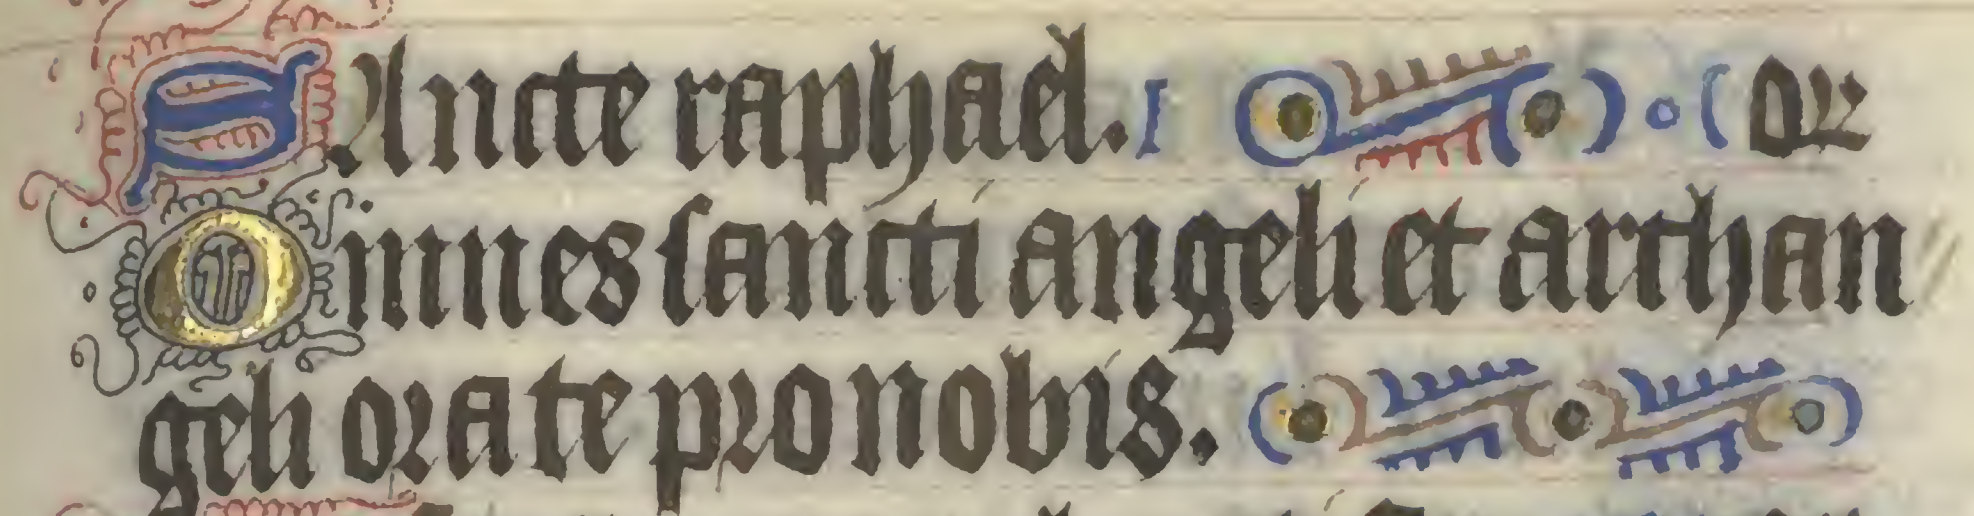 Sancte raphael. or
Omnes sancti angeli et archan
geli orate pro nobis.